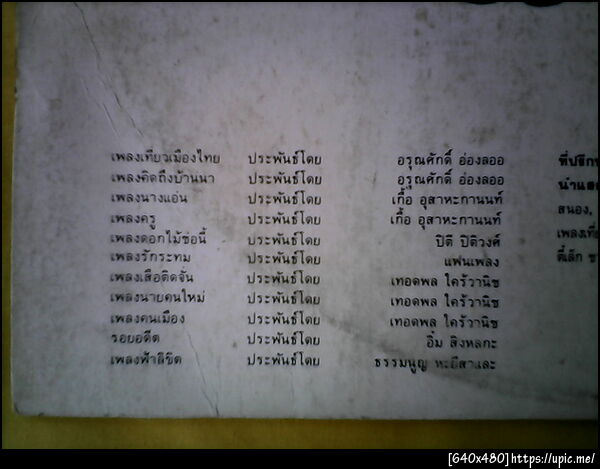 เพลงเที่ยวเมืองไทย ประพันธ์โดย อรุณศักดิ์ อ่องลออ
เพลงคิดถึงบ้านนา ประพันธ์โดย อรุณศักดิ์ อ่องลออ
เพลงนางแอ่น ประพันธ์โดย เกื้อ อุสาหะกานนท์
เพลงครู ประพันธ์โดย เกื้อ อุสาหะกานนท์
เพลงดอกไม้ช่อนี้ ประพันธ์โดย ปิติ ปิติวงศ์
เพลงรักระทม ประพันธ์โดย แฟนเพลง
เพลงเสือติดจั่น ประพันธ์โดย เทอดพล ใคร้วานิช
เพลงนายคนใหม่ ประพันธ์โดย เทอดพล ใคร้วานิช
เพลงคนเมือง ประพันธ์โดย เทอดพล ใคร้วานิช
รอยอดีต ประพันธ์โดย อิ่ม สิงหลกะ
เพลงฟ้าลิขิต ประพันธ์โดย ธรรมนูญ
ที่ปรึกษ
นำแสด
สนอง,
เพลงเที่
ตี๋เล็ก ช
[640x480]https://upic.me/